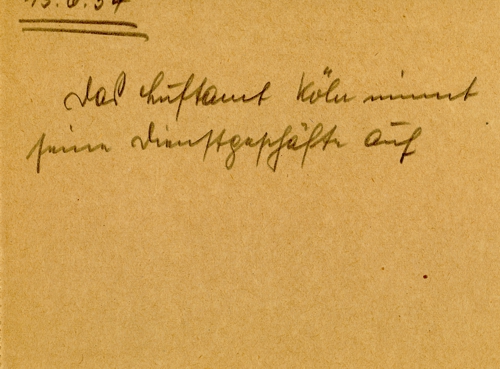 Das Luftamt Köln nimmt
seine Dienstgeschäfte auf